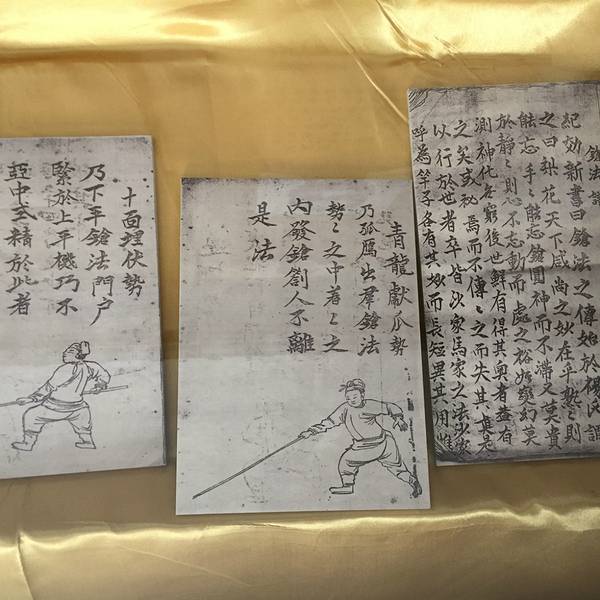 鎗法譜
紀効新書曰鎗法之傳始於楊氏謂
之曰梨花天下咸尚之妙在乎熟々則
能忘手々能忘鎗圓神而不滯又莫貴
於靜々則心不忘動而處之裕如變幻莫
測神化無窮後世鮮有得其奧者盖有
之矣或秘焉而不傳々之而失其真是
以行於世者卒皆沙家馬家之法沙家
呼為竿子各有其妙而長短異其用惟
青龍獻爪勢
乃孤鴈出群鎗法
勢々之中着々之
內發鎗劄人不離
是法
十面埋伏勢
乃下平鎗法門户
緊於上平機巧不
亞中式精於此者